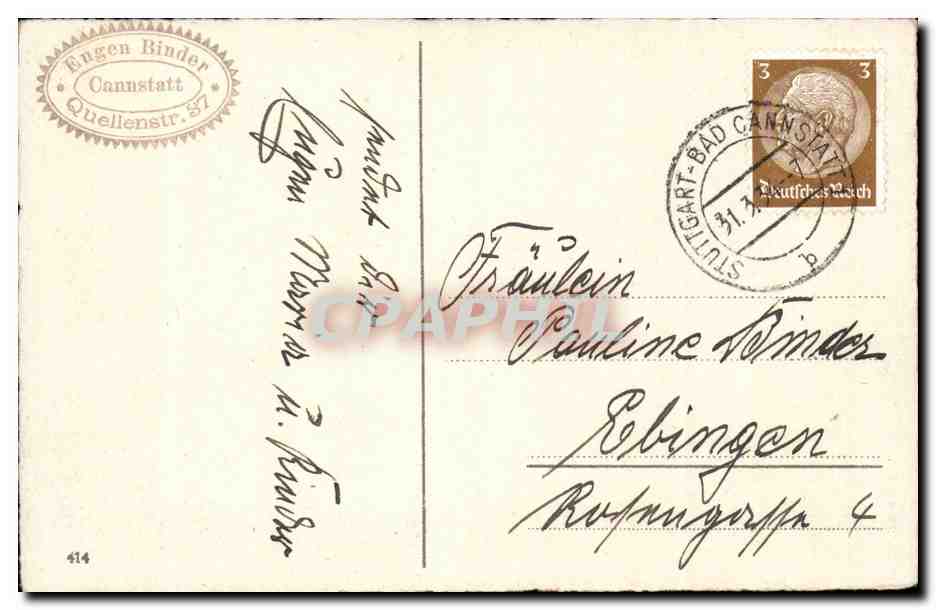 Eugen Binder
Cannstatt
Quellenstr. 37
sendet Euch
Eugen Mina u. Kinder
3 3
Deutsches Reich
STUTTGART-BAD CANNSTATT
31.3.
b
Fräulein
Pauline Binder
Ebingen
Rosengasse 4
CPAPHIL
414